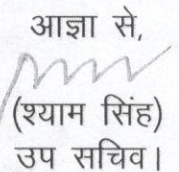 आज्ञा से,
(श्याम सिंह)
उप सचिव।